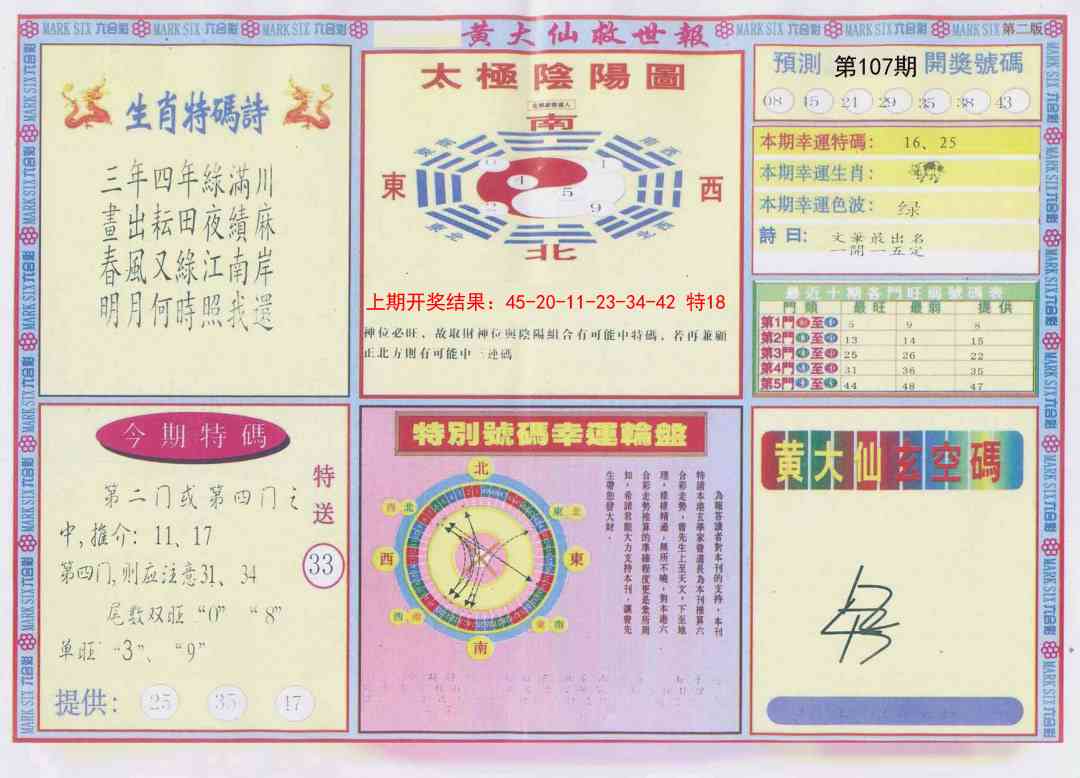 MARK SIX 六合彩
黄大仙救世報
第二版
生肖特碼詩
三年四年綠滿川
晝出耘田夜績麻
春風又綠江南岸
明月何時照我還
太極陰陽圖
南
東
西
北
東南
西南
東北
西北
0
1
4
5
2
9
上期开奖结果：45-20-11-23-34-42 特18
神位必旺，故取財神位與陰陽組合有可能中特碼，若再兼顧
正北方則有可能中三連碼
預測 第107期 開獎號碼
08 15 21 29 35 38 43
本期幸運特碼： 16、25
本期幸運生肖：
本期幸運色波： 绿
詩曰： 文筆最出名
一開一五定
最近十期各門旺弱號碼表
門類 最旺 最弱 提供
第1門 至 5 9 8
第2門 至 13 14 15
第3門 至 25 26 22
第4門 至 31 36 35
第5門 至 44 48 47
今期特碼
第二门或第四门之
中,推介: 11、17
第四门,则应注意31、34
尾数双旺“0” “8”
单旺“3”、“9”
特送
33
提供： 25 35 47
特別號碼幸運輪盤
北
西北
東北
西
東
西南
東南
南
為報答讀者對本刊的支持，本刊
特請本港玄學家曾道長為本刊推算六
合彩走勢，曾先生上至天文，下至地
理，樣樣精通，無所不曉，對本港六
合彩走勢推算的準確程度更是眾所周
知，希請君能大力支持本刊，讓曾先
生帶您發大財．
黄大仙玄空碼